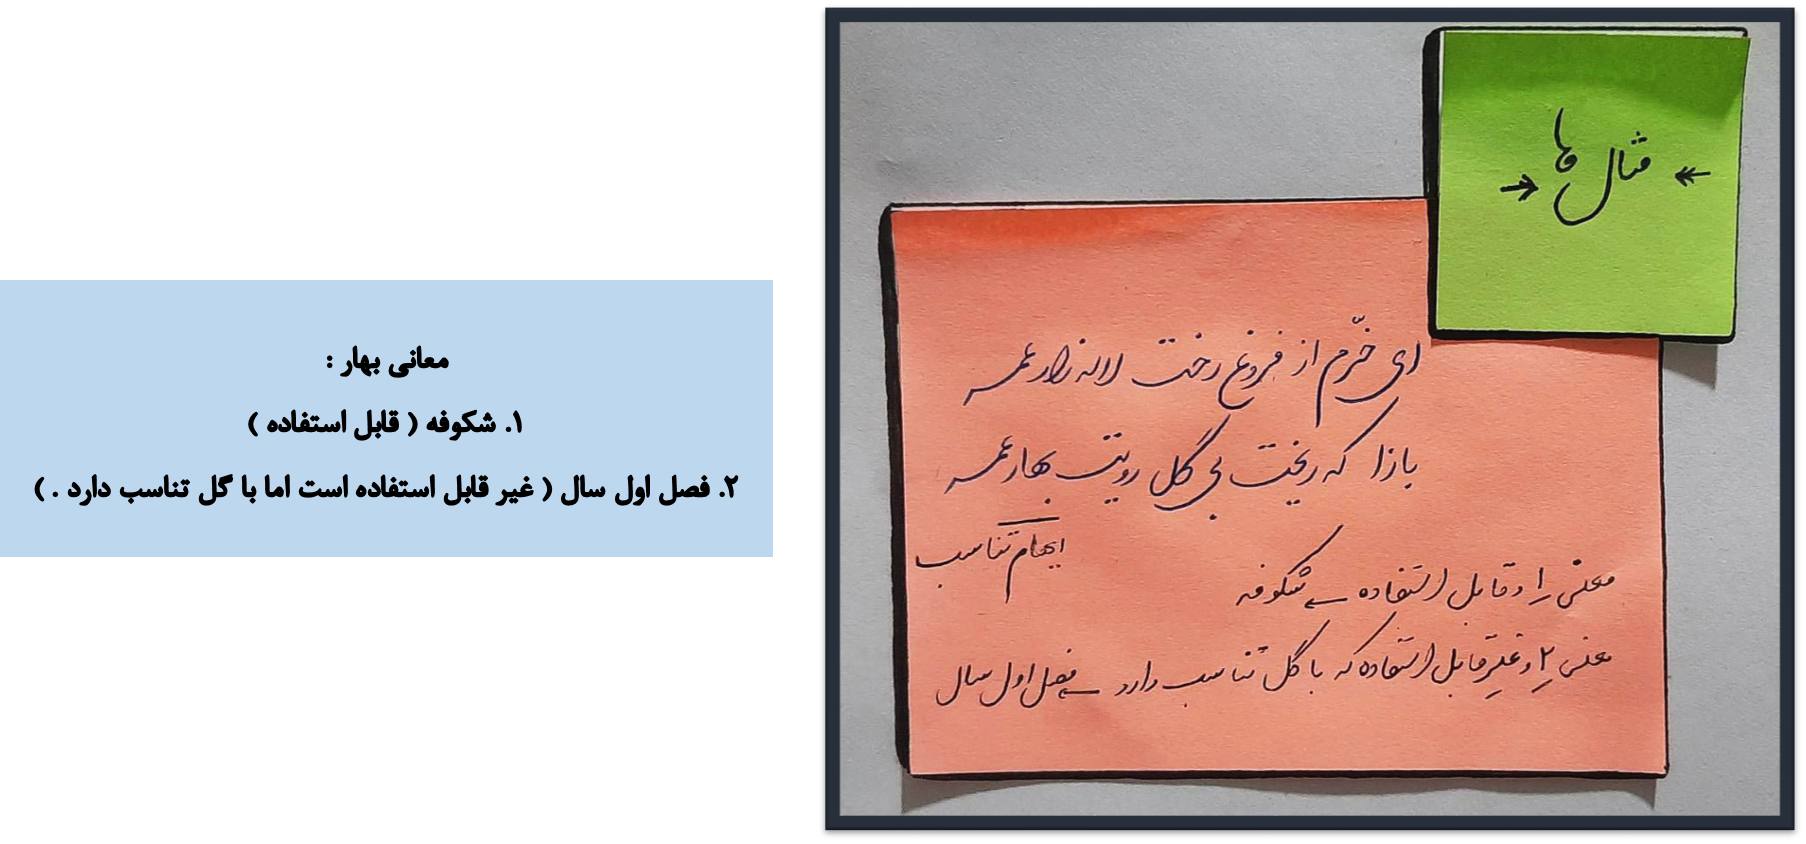 مثال ها
ای خرّم از فروغ رخت لاله زار عمر
بازآ که ریخت بی گل رویت بهار عمر
ایهام تناسب
معنی ۱ و قابل استفاده ← شکوفه
معنی ۲ و غیر قابل استفاده که با گل تناسب دارد ← فصل اول سال
معانی بهار :
۱. شکوفه ( قابل استفاده )
۲. فصل اول سال ( غیر قابل استفاده است اما با گل تناسب دارد . )